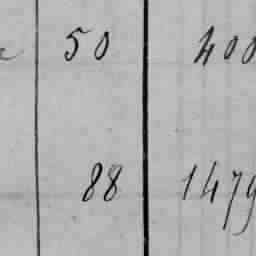 50 400
88 1479